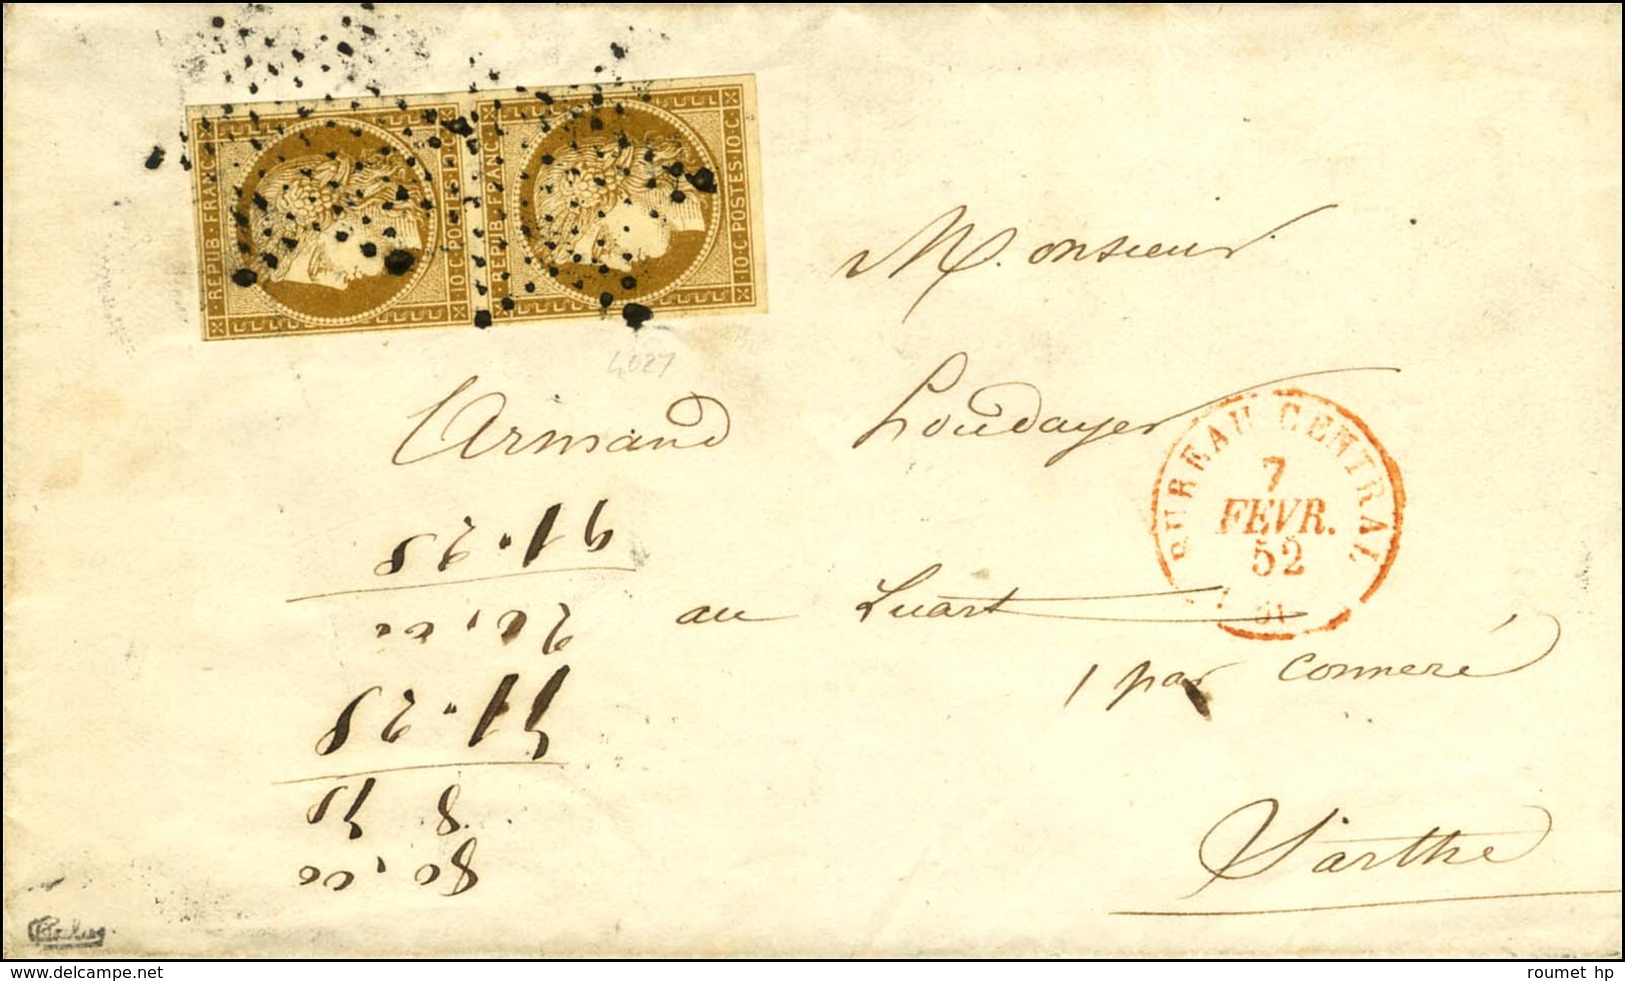 REPUB·FRANC
10·C·POSTES·10·C
REPUB·FRANC
10·C·POSTES·10·C
4027
Monsieur
Armand Houdayer
BUREAU CENTRAL
7
FEVR.
52
au Luart
par Conneré
Sarthe
80,00
8 75
71.25
20,00
91.25
www.delcampe.net
roumet hp